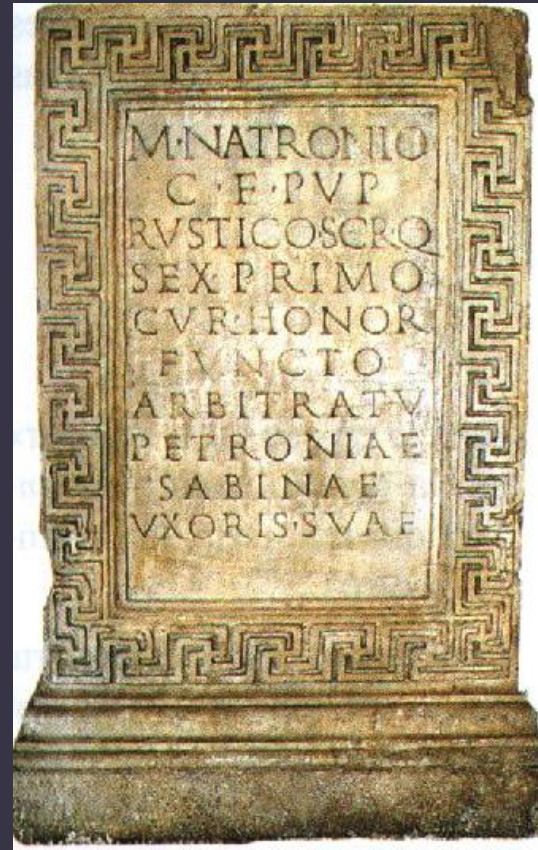 M·NATRONIO
C·F·PVP
RVSTICO·SCR·Q
SEX·PRIMO
CVR·HONOR
FVNCTO
ARBITRATV
PETRONIAE
SABINAE
VXORIS·SVAE